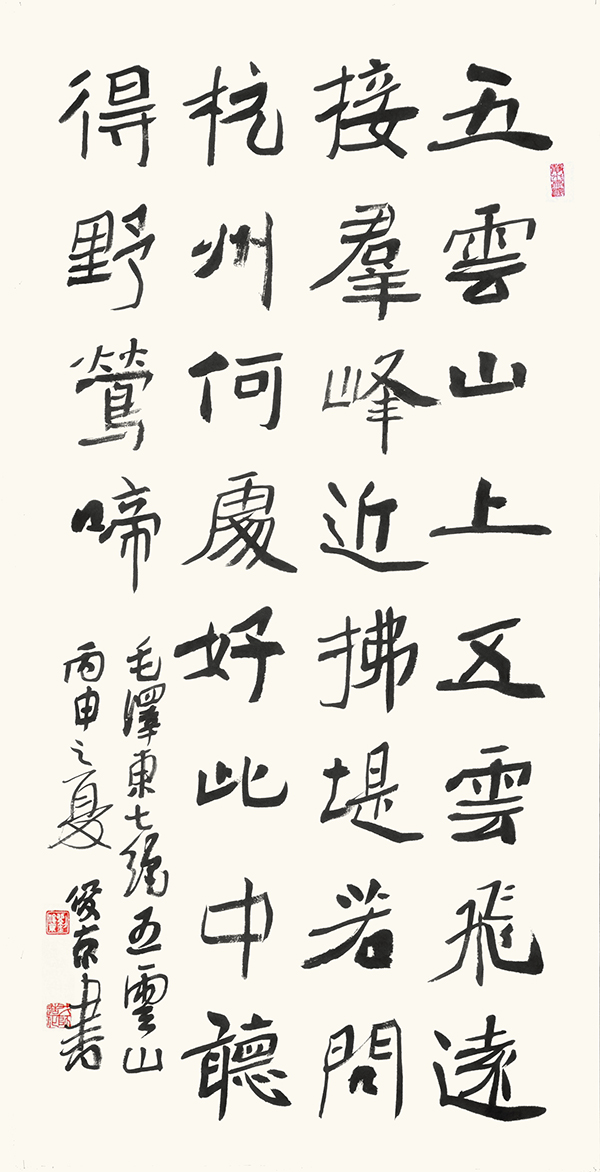 五雲山上五雲飛遠
接羣峰近拂堤若問
杭州何處好此中聽
得野鶯啼
毛澤東七絕五雲山
丙申之夏
俊京書